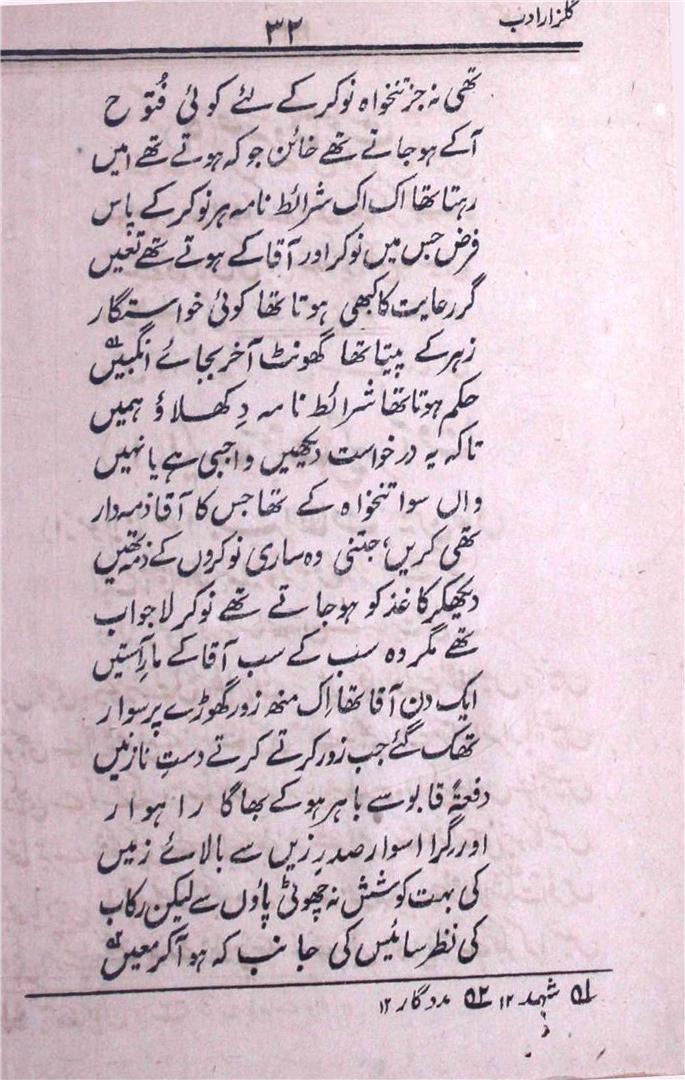 گلزار ادب
۳۲
تھی نہ جز تنخواہ نوکر کے لئے کوئی فُتوح
آکے ہوجاتے تھے خائن جو کہ ہوتے تھے امیں
رہتا تھا اک اک شرائط نامہ ہر نوکر کے پاس
فرض جس میں نوکر اور آقا کے ہوتے تھے تعیں
گر رعایت کا کبھی ہوتا تھا کوئی خواستگار
زہر کے پیتا تھا گھونٹ آخر بجائے انگبیں ۱؎
حکم ہوتا تھا شرائط نامہ دِکھلاؤ ہمیں
تاکہ یہ درخواست دیکھیں واجبی ہے یا نہیں
واں سوا تنخواہ کے تھا جس کا آقا ذمہ دار
تھی کریں، جتنی وہ ساری نوکروں کے ذمہ تھیں
دیکھکر کاغذ کو ہوجاتے تھے نوکر لاجواب
تھے مگر وہ سب کے سب آقا کے مارِ آستیں
ایک دن آقا تھا اِک منھ زور گھوڑے پر سوار
تھک گئے جب زور کرتے کرتے دستِ نازنیں
دفعۃً قابو سے باہر ہو کے بھاگا راہوار
اور گرا اسوار صدرِ زیں سے بالائے زمیں
کی بہت کوشش نہ چھوٹی پاؤں سے لیکن رکاب
کی نظر سائیس کی جانب کہ ہو آکر معیں ۲؎
۱؎ شہد ۱۲ ۲؎ مددگار ۱۲